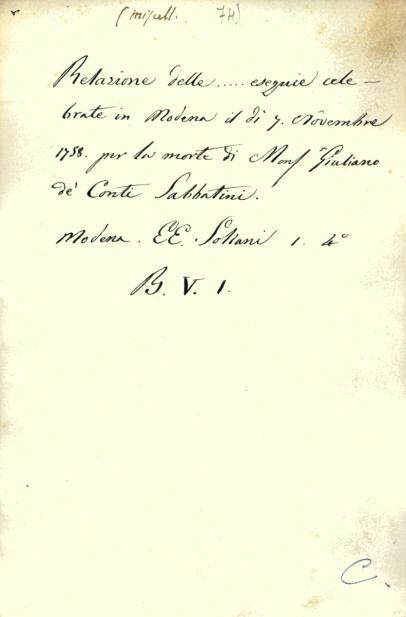 (miscell. 74)
Relazione delle ..... eseguie cele-
brate in Modena il dì 7. Novembre
1758. per la morte di Mons. Giuliano
de' Conti Sabbatini.
Modena. EE. Soliani 1. 4°
B. V. 1.
C.